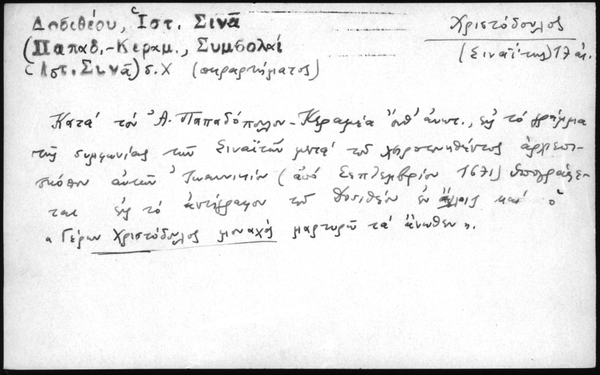 Δοσιθέου, Ἱστ. Σινᾶ
(Παπαδ.-Κεραμ., Συμβολαί
(Ἱστ. Σινᾶ) σ. Χ (παραρτήματος)
Χριστόδουλος
(Σιναΐτης) 17 αἰ.
Κατὰ τὸν Ἀ. Παπαδόπουλον-Κεραμέα ἔνθ' ἀνωτ., εἰς τὸ γράμμα
τῆς συμφωνίας τῶν Σιναϊτῶν μετὰ τοῦ χειροτονηθέντος ἀρχιεπι-
σκόπου αὐτῶν Ἰωαννικίου (ἀπὸ Σεπτεμβρίου 1671) ὑπογράφε-
ται εἰς τὸ ἀντίγραφον τοῦ Δοσιθέου ἐν ἄλλοις καὶ ὁ
"Γέρων Χριστόδουλος μοναχὸς μαρτυρῶ τὰ ἄνωθεν".